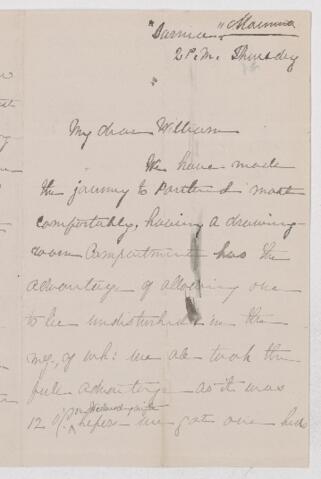 "Sarnia" Mamma
2 P.M. Thursday
My dear William
We have made
the journey to Portland most
comfortably, having a drawing-
room Compartment has the
advantage of allowing one
to lie undisturbed in the
mg, of wh: we all took the
full advantage as it was
12 O/C on Wednesday night before we got our bed